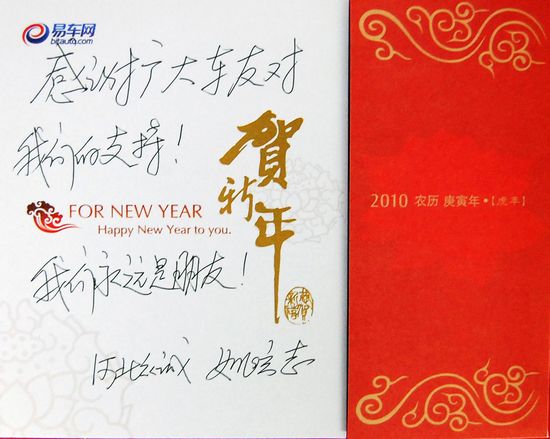 易车网
bitauto.com
感谢扩大车友对
我们的支持！
FOR NEW YEAR
Happy New Year to you.
贺新年
我们永远是朋友！
2010 农历 庚寅年·【虎年】